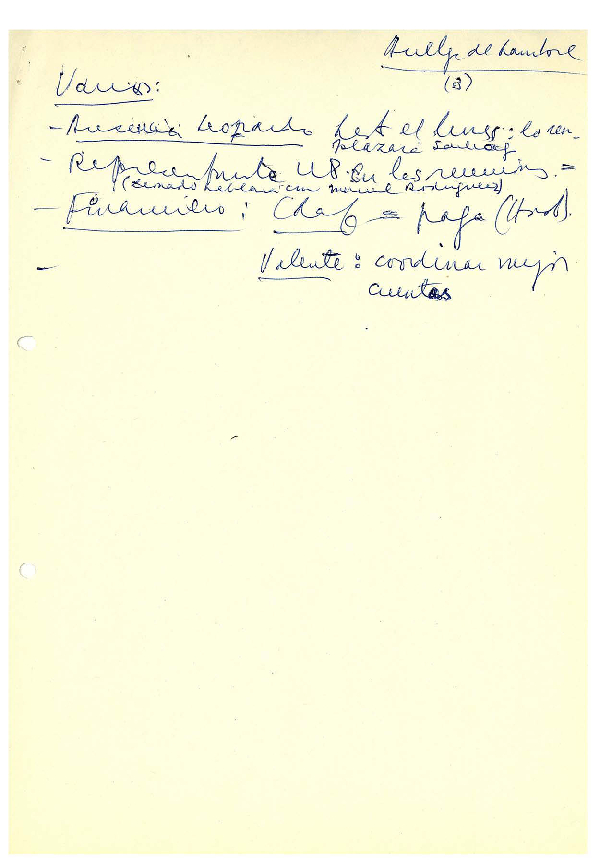 Huelga de hambre
(3)
Varios:
- Ausencia Leopardo hasta el lunes: lo reem-
plazará
- Representante UP en las reuniones. =
(Leonardo hablará con Manuel Rodríguez)
- Financiero: = paga
- Valente: coordinar mejor
cuentas